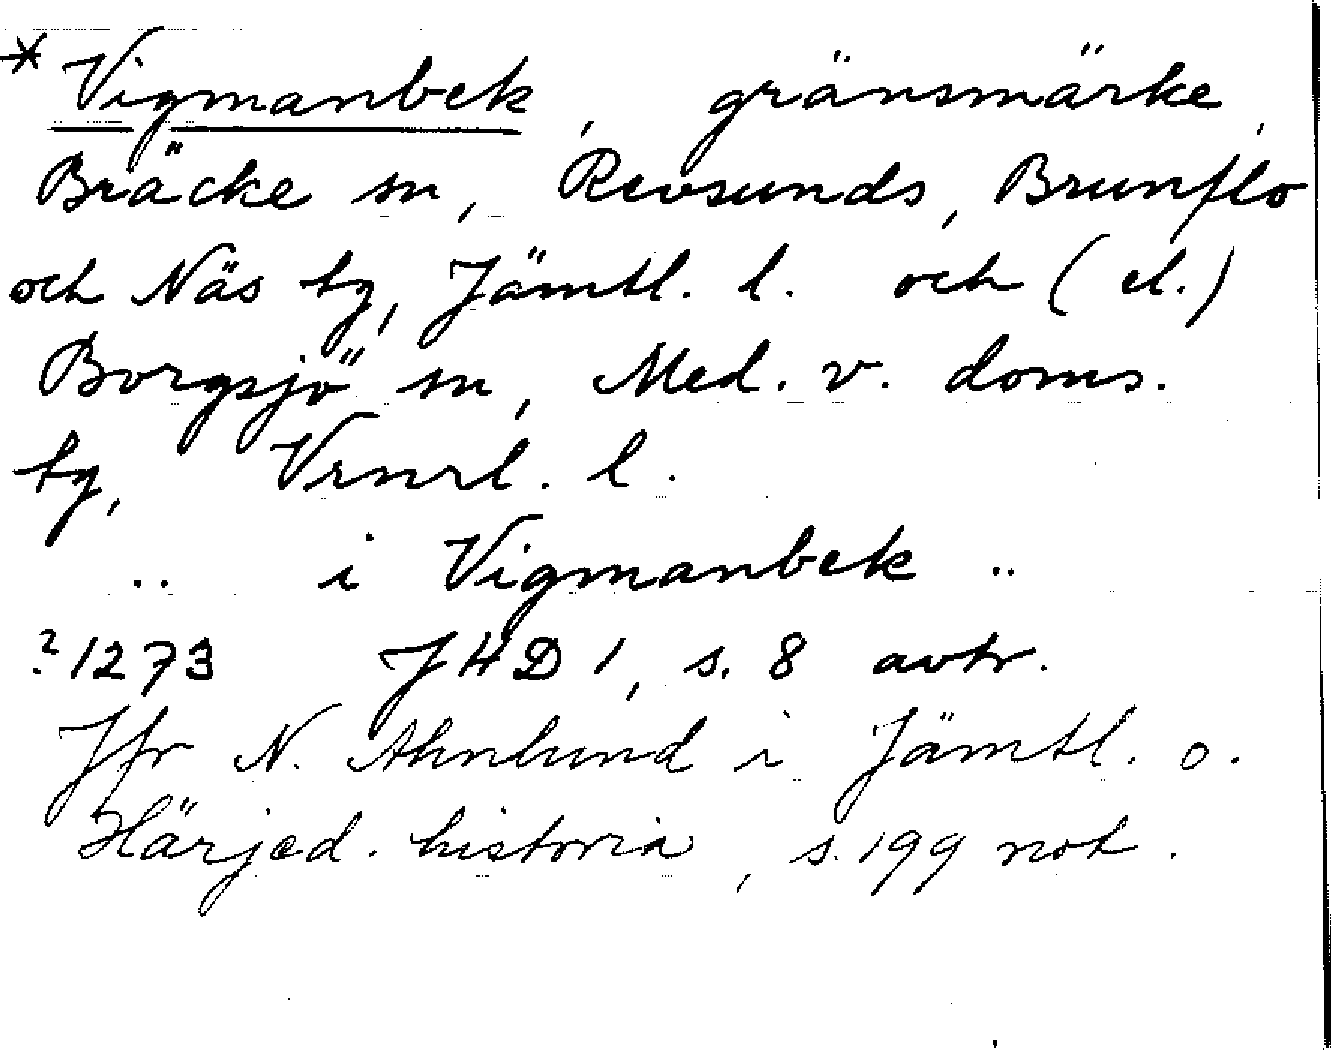 * Vigmanbek, gränsmärke,
Bräcke sn, Revsunds, Brunflo
och Näs tg, Jämtl. l. och (el.)
Borgsjö sn, Med. v. doms.
tg, Vrnrl. l.
.. i Vigmanbek ..
? 1273 JHD 1, s. 8 avtr.
Jfr N. Ahnlund i Jämtl. o.
Härjed. historia, s. 199 not.